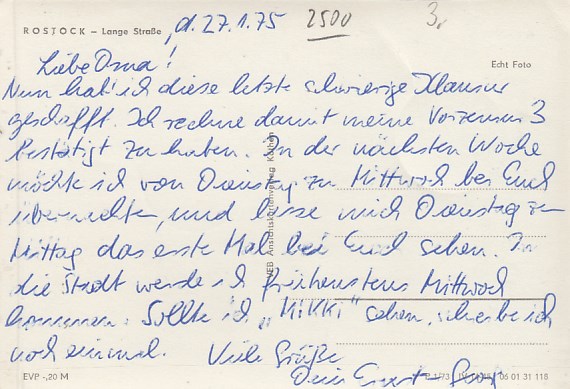 ROSTOCK — Lange Straße , d. 27.1.75 2500 3,
Echt Foto
Liebe Oma!
Nun hab' ich diese letzte schwierige Klausur
geschafft. Ich rechne damit meine Vorzensur 3
bestätigt zu haben. In der nächsten Woche
möchte ich von Dienstag zu Mittwoch bei Euch
übernachten, und lasse mich Dienstag zu
Mittag das erste Mal bei Euch sehen. In
die Stadt werde ich frühenstens Mittwoch
kommen. Sollte ich „Mikki" sehen, schreibe ich
noch einmal. Viele Grüße
Dein Ernst
VEB Ansichtskartenverlag Köthen
EVP -,20 M
06 01 31 118